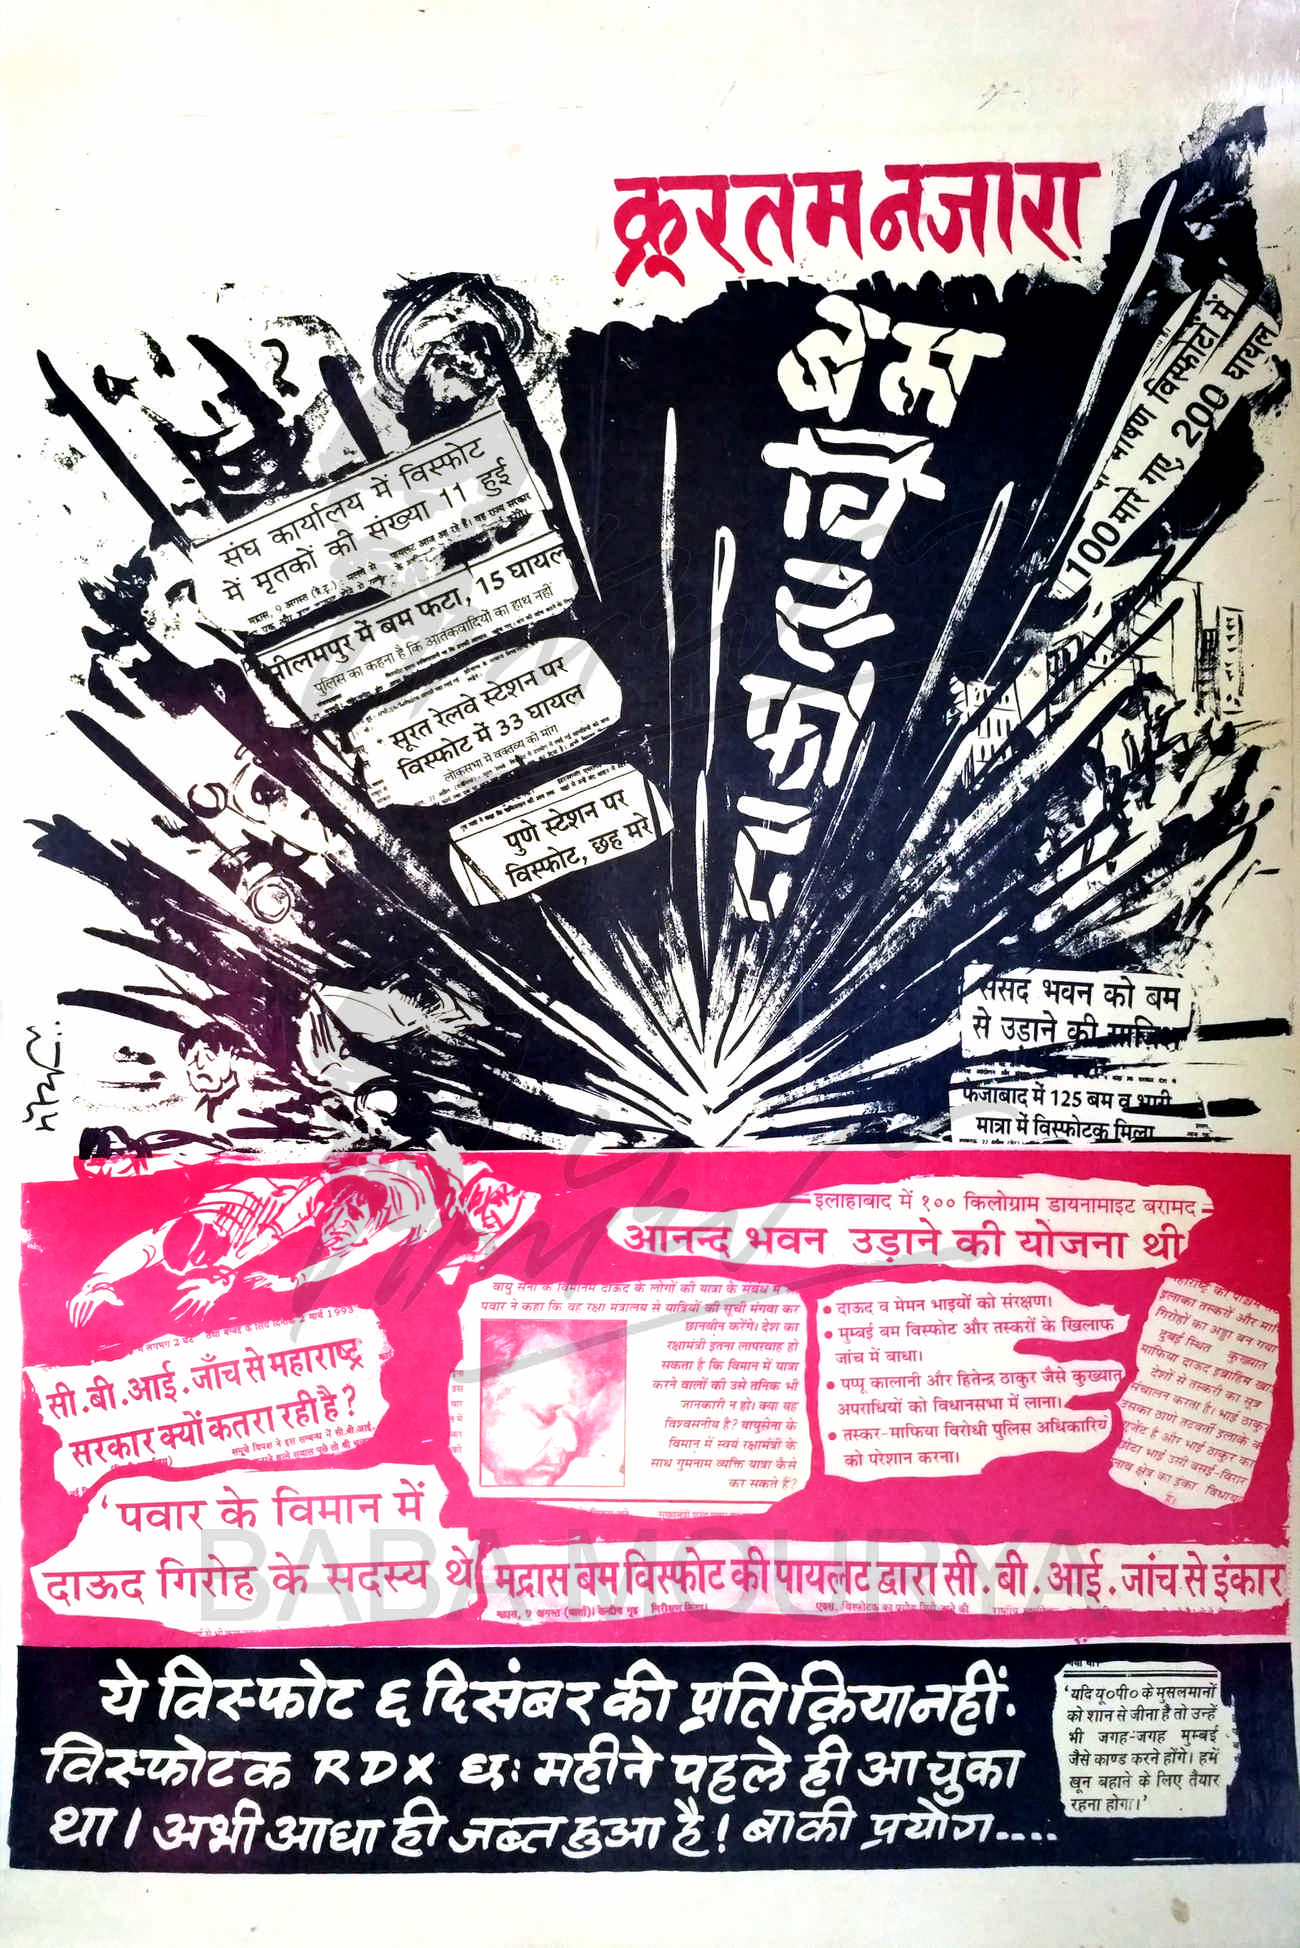 क्रूरतम नजारा
बम
विस्फोट
विस्फोटों में
100 मारे गए, 200 घायल
संघ कार्यालय में विस्फोट
में मृतकों की संख्या 11 हुई
सीलमपुर में बम फटा, 15 घायल
पुलिस का कहना है कि आतंकवादियों का हाथ नहीं
सूरत रेलवे स्टेशन पर
विस्फोट में 33 घायल
लोकसभा में वक्तव्य की मांग
पुणे स्टेशन पर
विस्फोट, छह मरे
संसद भवन को बम
से उड़ाने की साजिश
फैजाबाद में 125 बम व भारी
मात्रा में विस्फोटक मिला
इलाहाबाद में १०० किलोग्राम डायनामाइट बरामद
आनन्द भवन उड़ाने की योजना थी
सी.बी.आई. जाँच से महाराष्ट्र
सरकार क्यों कतरा रही है?
वायु सेना के विमानमें दाऊद के लोगों की यात्रा के संबंध में
पवार ने कहा कि वह रक्षा मंत्रालय से यात्रियों की सूची मंगवा कर
छानबीन करेंगे। देश का
रक्षामंत्री इतना लापरवाह हो
सकता है कि विमान में यात्रा
करने वालों की उसे तनिक भी
जानकारी न हो। क्या यह
विश्वसनीय है? वायुसेना के
विमान में स्वयं रक्षामंत्री के
साथ गुमनाम व्यक्ति यात्रा कैसे
कर सकते हैं?
• दाऊद व मेमन भाइयों को संरक्षण।
• मुम्बई बम विस्फोट और तस्करों के खिलाफ
जांच में बाधा।
• पप्पू कालानी और हितेन्द्र ठाकुर जैसे कुख्यात
अपराधियों को विधानसभा में लाना।
• तस्कर-माफिया विरोधी पुलिस अधिकारियों
को परेशान करना।
इलाका तस्करों और
गिरोहों का अड्डा बन गया
दुबई स्थित कुख्यात
माफिया दाऊद इब्राहिम
देशों से तस्करी का सूत्र
संचालन करता है। भाई ठाकुर
उसका ठाणे तटवर्ती इलाके का
एजेंट है और भाई ठाकुर का
छोटा भाई उसी बसई-विरार
क्षेत्र का इका विधायक
है।
'पवार के विमान में
दाऊद गिरोह के सदस्य थे
मद्रास बम विस्फोट की पायलट द्वारा सी.बी.आई. जांच से इंकार
BABA MOURYA
ये विस्फोट ६ दिसंबर की प्रतिक्रिया नहीं.
विस्फोटक RDX छः महीने पहले ही आ चुका
था। अभी आधा ही जब्त हुआ है! बाकी प्रयोग....
'यदि यू०पी० के मुसलमानों
को शान से जीना है तो उन्हें
भी जगह-जगह मुम्बई
जैसे काण्ड करने होंगे। हमें
खून बहाने के लिए तैयार
रहना होगा।'